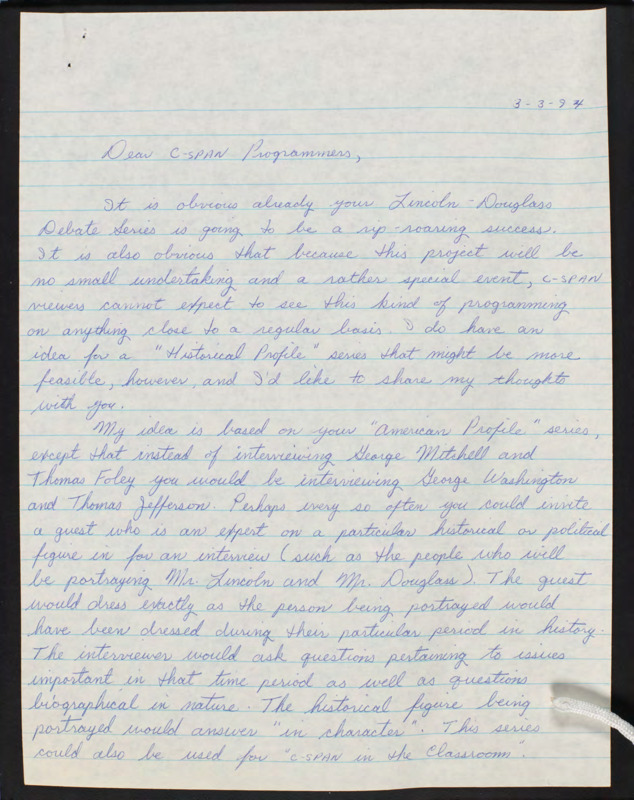 3-3-94
Dear C-SPAN Programmers,
It is obvious already your Lincoln-Douglass
Debate Series is going to be a rip-roaring success.
It is also obvious that because this project will be
no small undertaking and a rather special event, C-SPAN
viewers cannot expect to see this kind of programming
on anything close to a regular basis. I do have an
idea for a "Historical Profile" series that might be more
feasible, however, and I'd like to share my thoughts
with you.
My idea is based on your "American Profile" series,
except that instead of interviewing George Mitchell and
Thomas Foley you would be interviewing George Washington
and Thomas Jefferson. Perhaps every so often you could invite
a guest who is an expert on a particular historical or political
figure in for an interview (such as the people who will
be portraying Mr. Lincoln and Mr. Douglass). The guest
would dress exactly as the person being portrayed would
have been dressed during their particular period in history.
The interviewer would ask questions pertaining to issues
important in that time period as well as questions
biographical in nature. The historical figure being
portrayed would answer "in character". This series
could also be used for "C-SPAN in the Classroom".